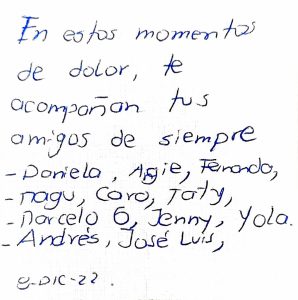 En estos momentos
de dolor, te
acompañan tus
amigos de siempre
- Daniela, Angie, Fernando,
- Magu, Caro, Taty,
- Marcelo G, Jenny, Yola.
- Andrés, José Luis,
8-DIC-22.